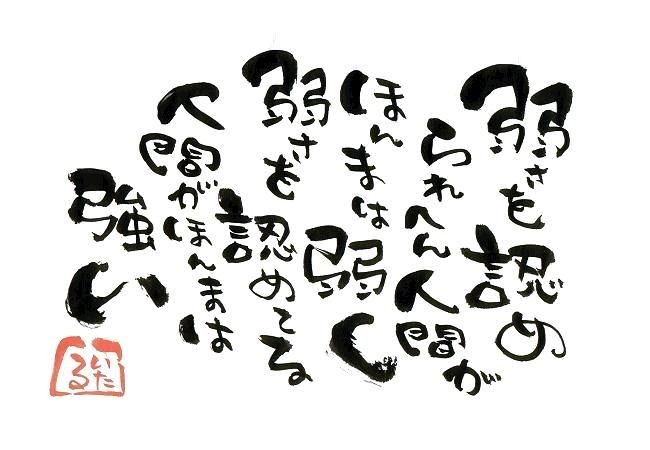 弱さを認め
られへん人間が
ほんまは弱く
弱さを認めてる
人間がほんまは
強い
いたる